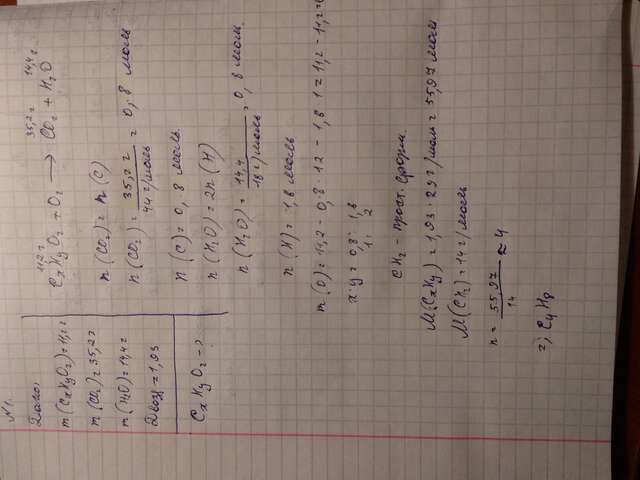 N1.
Дано:
m(CxHyO2)=11,2г
m(CO2)=35,2г
m(H2O)=14,4г
Dвозд=1,93
CxHyO2 -?
11,2г 35,2г 14,4г
CxHyO2 + O2 → CO2 + H2O
n(CO2) = n(C)
n(CO2) = 35,2г / 44г/моль = 0,8 моль
n(C) = 0,8 моль.
n(H2O) = 2n(H)
n(H2O) = 14,4 / 18г/моль = 0,8 моль.
n(H) = 1,6 моль
m(O) = 11,2 - 0,8·12 - 1,6·1 = 11,2 - 11,2=0
x:y = 0,8:1,6
1:2
CH2 - прост. форм.
M(CxHy) = 1,93·29г/моль = 55,97 моль
M(CH2) = 14г/моль
n = 55,97 / 14 ≈ 4
=> C4H8